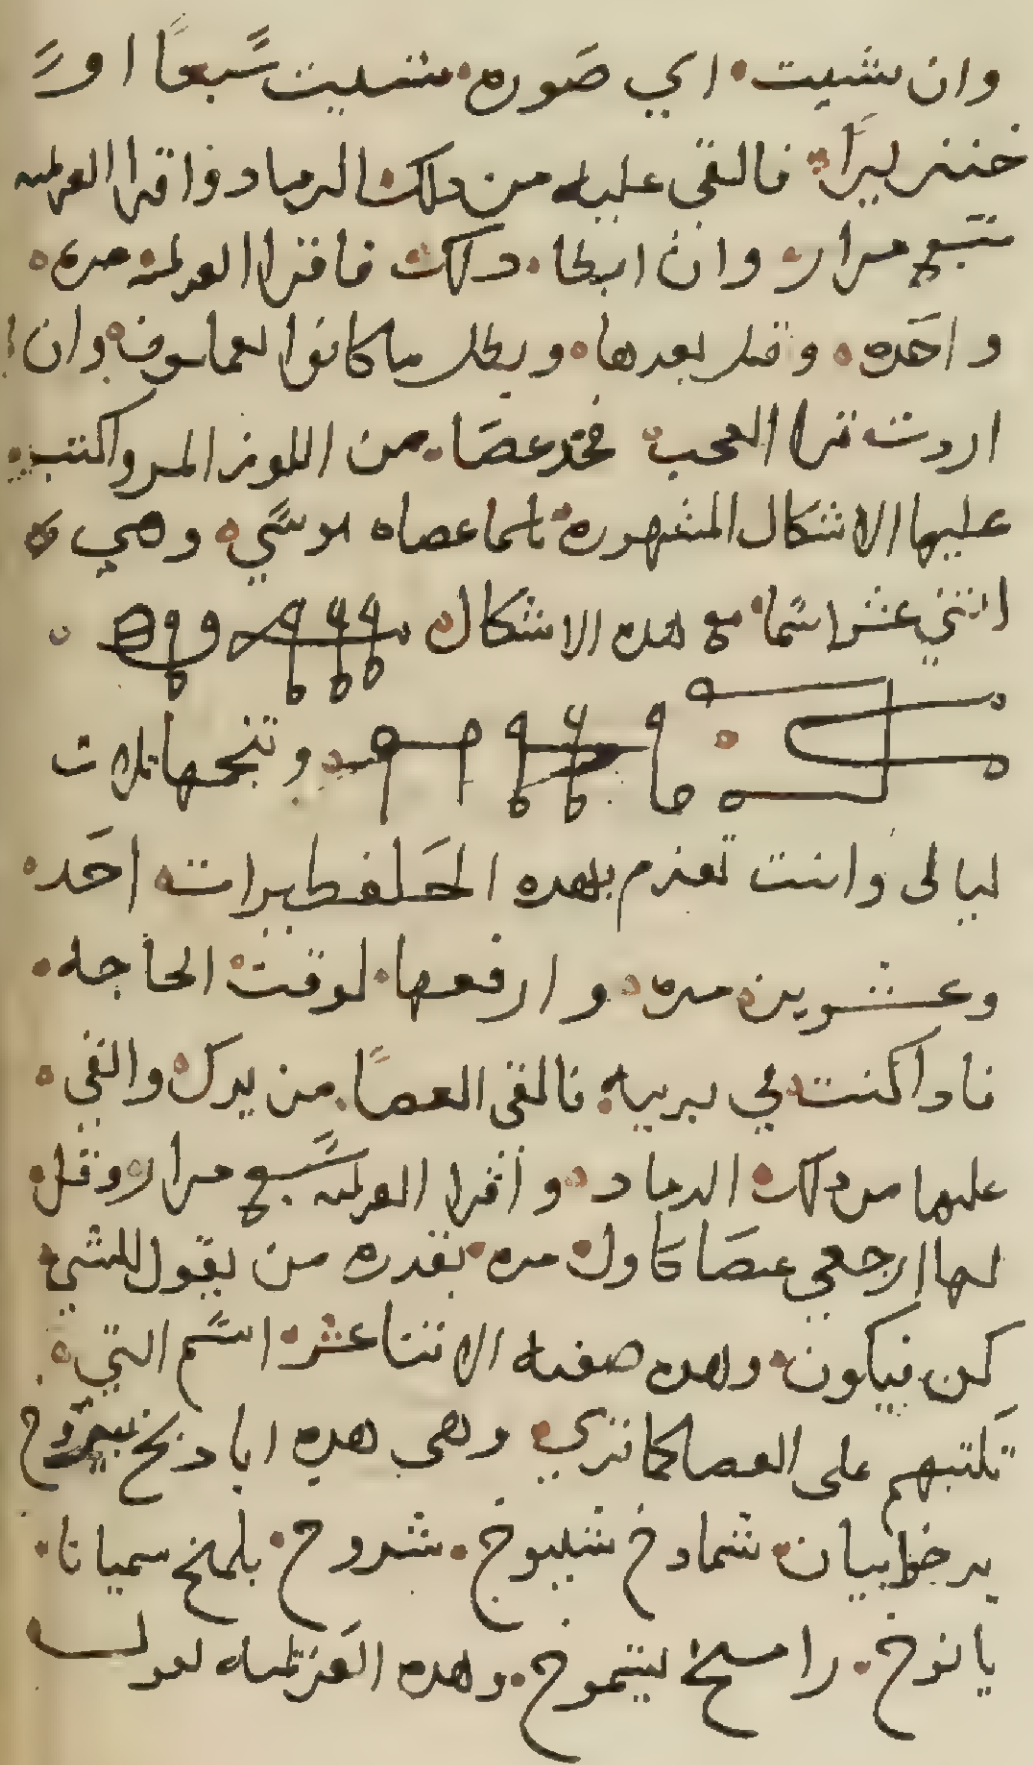 وان شيت اي صوره شيت سبعا او
خنزيرا فالقي عليه من دلك الرماد واقرا العزيمه
سبع مرار وان ابطا دلك فاقرا العزيمه مره
واحده وقل بعدها وبطل ما كانوا يعملون وان
اردت ترا العجب فخد عصا من اللوز المر واكتب
عليها الاشكال المشهوره بانها عصاه موسي وهي
اثني عشر اسما مع هده الاشكال
وتنجمها تلات
ليالي وانت تعزم بهده الحلفطيرات احد
وعشرين مره وارفعها لوقت الحاجه
فادا كنت في بريه فالقي العصا من يدك والقي
عليها من دلك الرماد واقرا العزيمه سبع مرار وقل
لها ارجعي عصا كاول مره بقدره من يقول للشي
كن فيكون وهده صفه الاتنا عشر اسم التي
تكتبهم على العصا كما تري وهي هده ابادخ بيروخ
يرخوا بيان شمادخ شيبوخ شروخ بلمخ سميانا
يانوخ رامسخ ليتموخ وهده العزيمه تقول